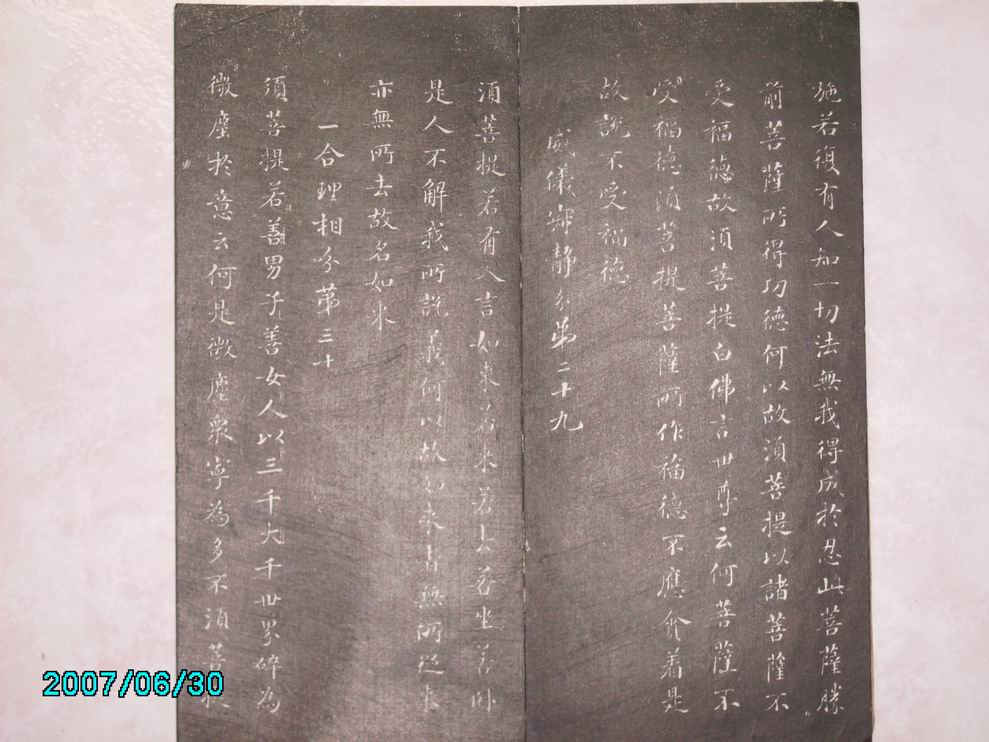 施若復有人知一切法無我得成於忍此菩薩勝
前菩薩所得功德何以故須菩提以諸菩薩不
受福德故須菩提白佛言世尊云何菩薩不
受福德須菩提菩薩所作福德不應貪着是
故說不受福德
威儀寂静分第二十九
須菩提若有人言如來若来若去若坐若卧
是人不解我所說義何以故如来者無所從来
亦無所去故名如来
一合理相分第三十
須菩提若善男子善女人以三千大千世界碎為
微塵於意云何是微塵衆寧為多不須菩提
2007/06/30